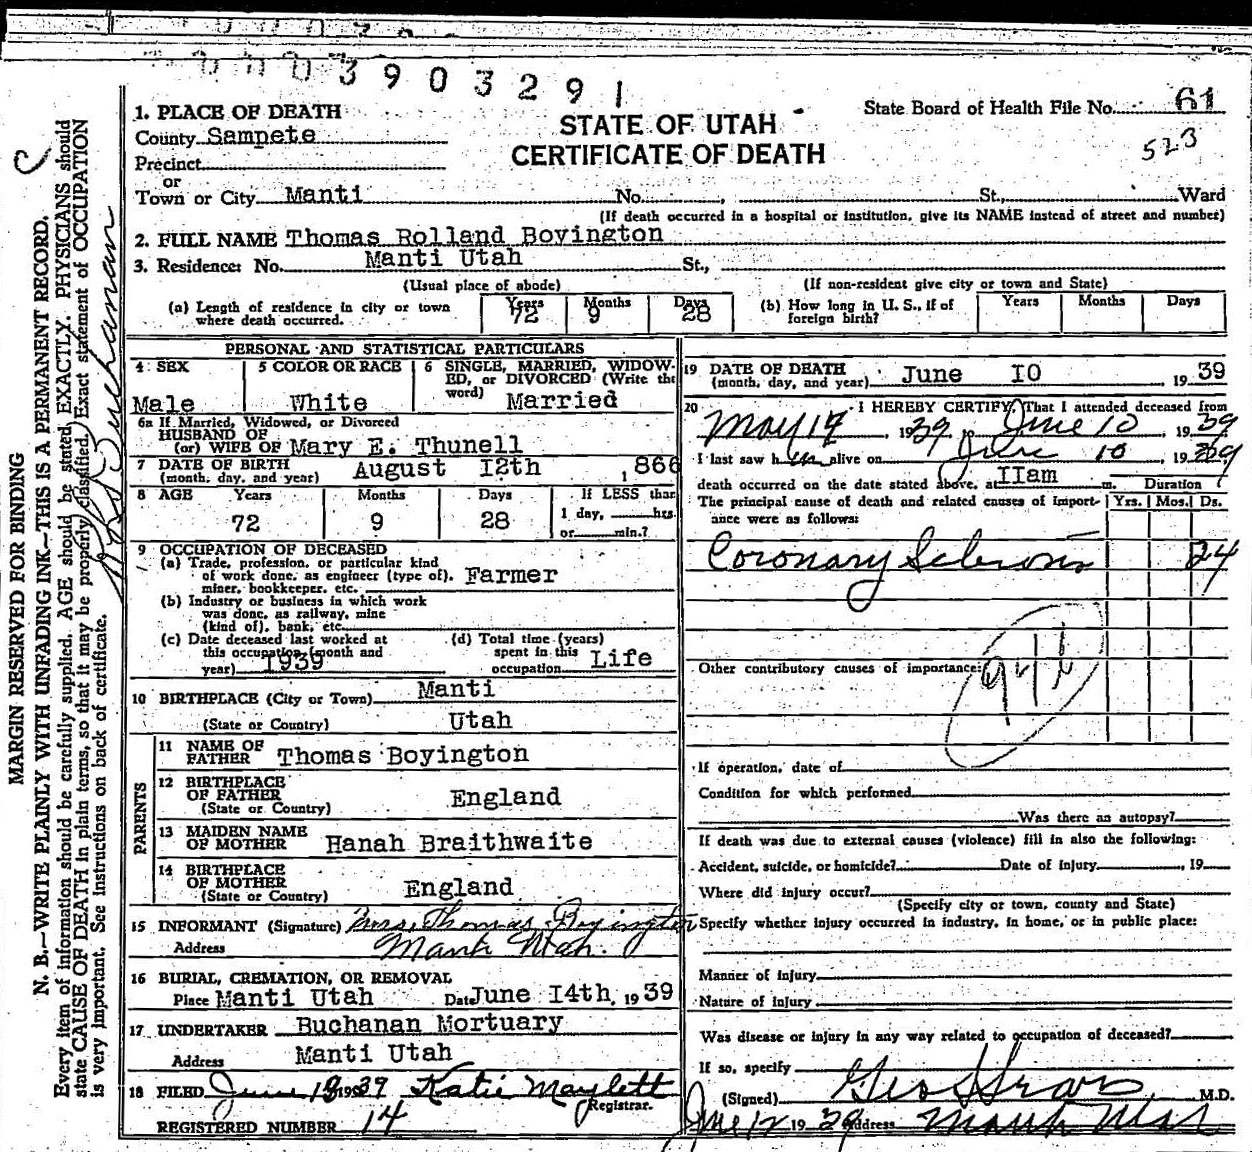 3903291
1. PLACE OF DEATH
County Sampete
Precinct
or
Town or City Manti No. , St., Ward
STATE OF UTAH
CERTIFICATE OF DEATH
State Board of Health File No. 61
523
(If death occurred in a hospital or institution, give its NAME instead of street and number)
2. FULL NAME Thomas Rolland Boyington
3. Residence: No. Manti Utah St.,
(Usual place of abode) (If non-resident give city or town and State)
(a) Length of residence in city or town where death occurred. Years 72 Months 9 Days 28
(b) How long in U. S., if of foreign birth? Years Months Days
PERSONAL AND STATISTICAL PARTICULARS
4 SEX Male
5 COLOR OR RACE White
6 SINGLE, MARRIED, WIDOWED, or DIVORCED (Write the word) Married
6a If Married, Widowed, or Divorced
HUSBAND OF
(or) WIFE OF Mary E. Thunell
7 DATE OF BIRTH
(month, day, and year) August I2th 1,866
8 AGE Years Months Days If LESS than
72 9 28 1 day, hrs.
or min.?
9 OCCUPATION OF DECEASED
(a) Trade, profession, or particular kind
of work done, as engineer (type of), Farmer
miner, bookkeeper, etc.
(b) Industry or business in which work
was done, as railway, mine
(kind of), bank, etc.
(c) Date deceased last worked at
this occupation (month and
year) 1939
(d) Total time (years)
spent in this
occupation Life
10 BIRTHPLACE (City or Town) Manti
(State or Country) Utah
PARENTS
11 NAME OF
FATHER Thomas Boyington
12 BIRTHPLACE
OF FATHER England
(State or Country)
13 MAIDEN NAME
OF MOTHER Hanah Braithwaite
14 BIRTHPLACE
OF MOTHER England
(State or Country)
15 INFORMANT (Signature) Mrs. Thomas Boyington
Address Manti Utah.
16 BURIAL, CREMATION, OR REMOVAL
Place Manti Utah Date June I4th, 1939
17 UNDERTAKER Buchanan Mortuary
Address Manti Utah
18 FILED June 1939 Katie Maylett
Registrar.
REGISTERED NUMBER 14
19 DATE OF DEATH
(month, day, and year) June I0 , 1939
20 I HEREBY CERTIFY, That I attended deceased from
May 17, 1939, to June 10, 1939
I last saw him alive on June 10, 1939
death occurred on the date stated above, at IIam m. Duration
The principal cause of death and related causes of importance were as follows: Yrs. Mos. Ds.
Coronary Sclerosis 24
Other contributory causes of importance:
If operation, date of
Condition for which performed
Was there an autopsy?
If death was due to external causes (violence) fill in also the following:
Accident, suicide, or homicide? Date of injury , 19
Where did injury occur?
(Specify city or town, county and State)
Specify whether injury occurred in industry, in home, or in public place:
Manner of injury
Nature of injury
Was disease or injury in any way related to occupation of deceased?
If so, specify
(Signed) M.D.
June 12 1939 Address Manti Utah
MARGIN RESERVED FOR BINDING
N. B.—WRITE PLAINLY WITH UNFADING INK—THIS IS A PERMANENT RECORD.
Every item of information should be carefully supplied. AGE should be stated EXACTLY. PHYSICIANS should
state CAUSE OF DEATH in plain terms, so that it may be properly classified. Exact statement of OCCUPATION
is very important. See instructions on back of certificate.